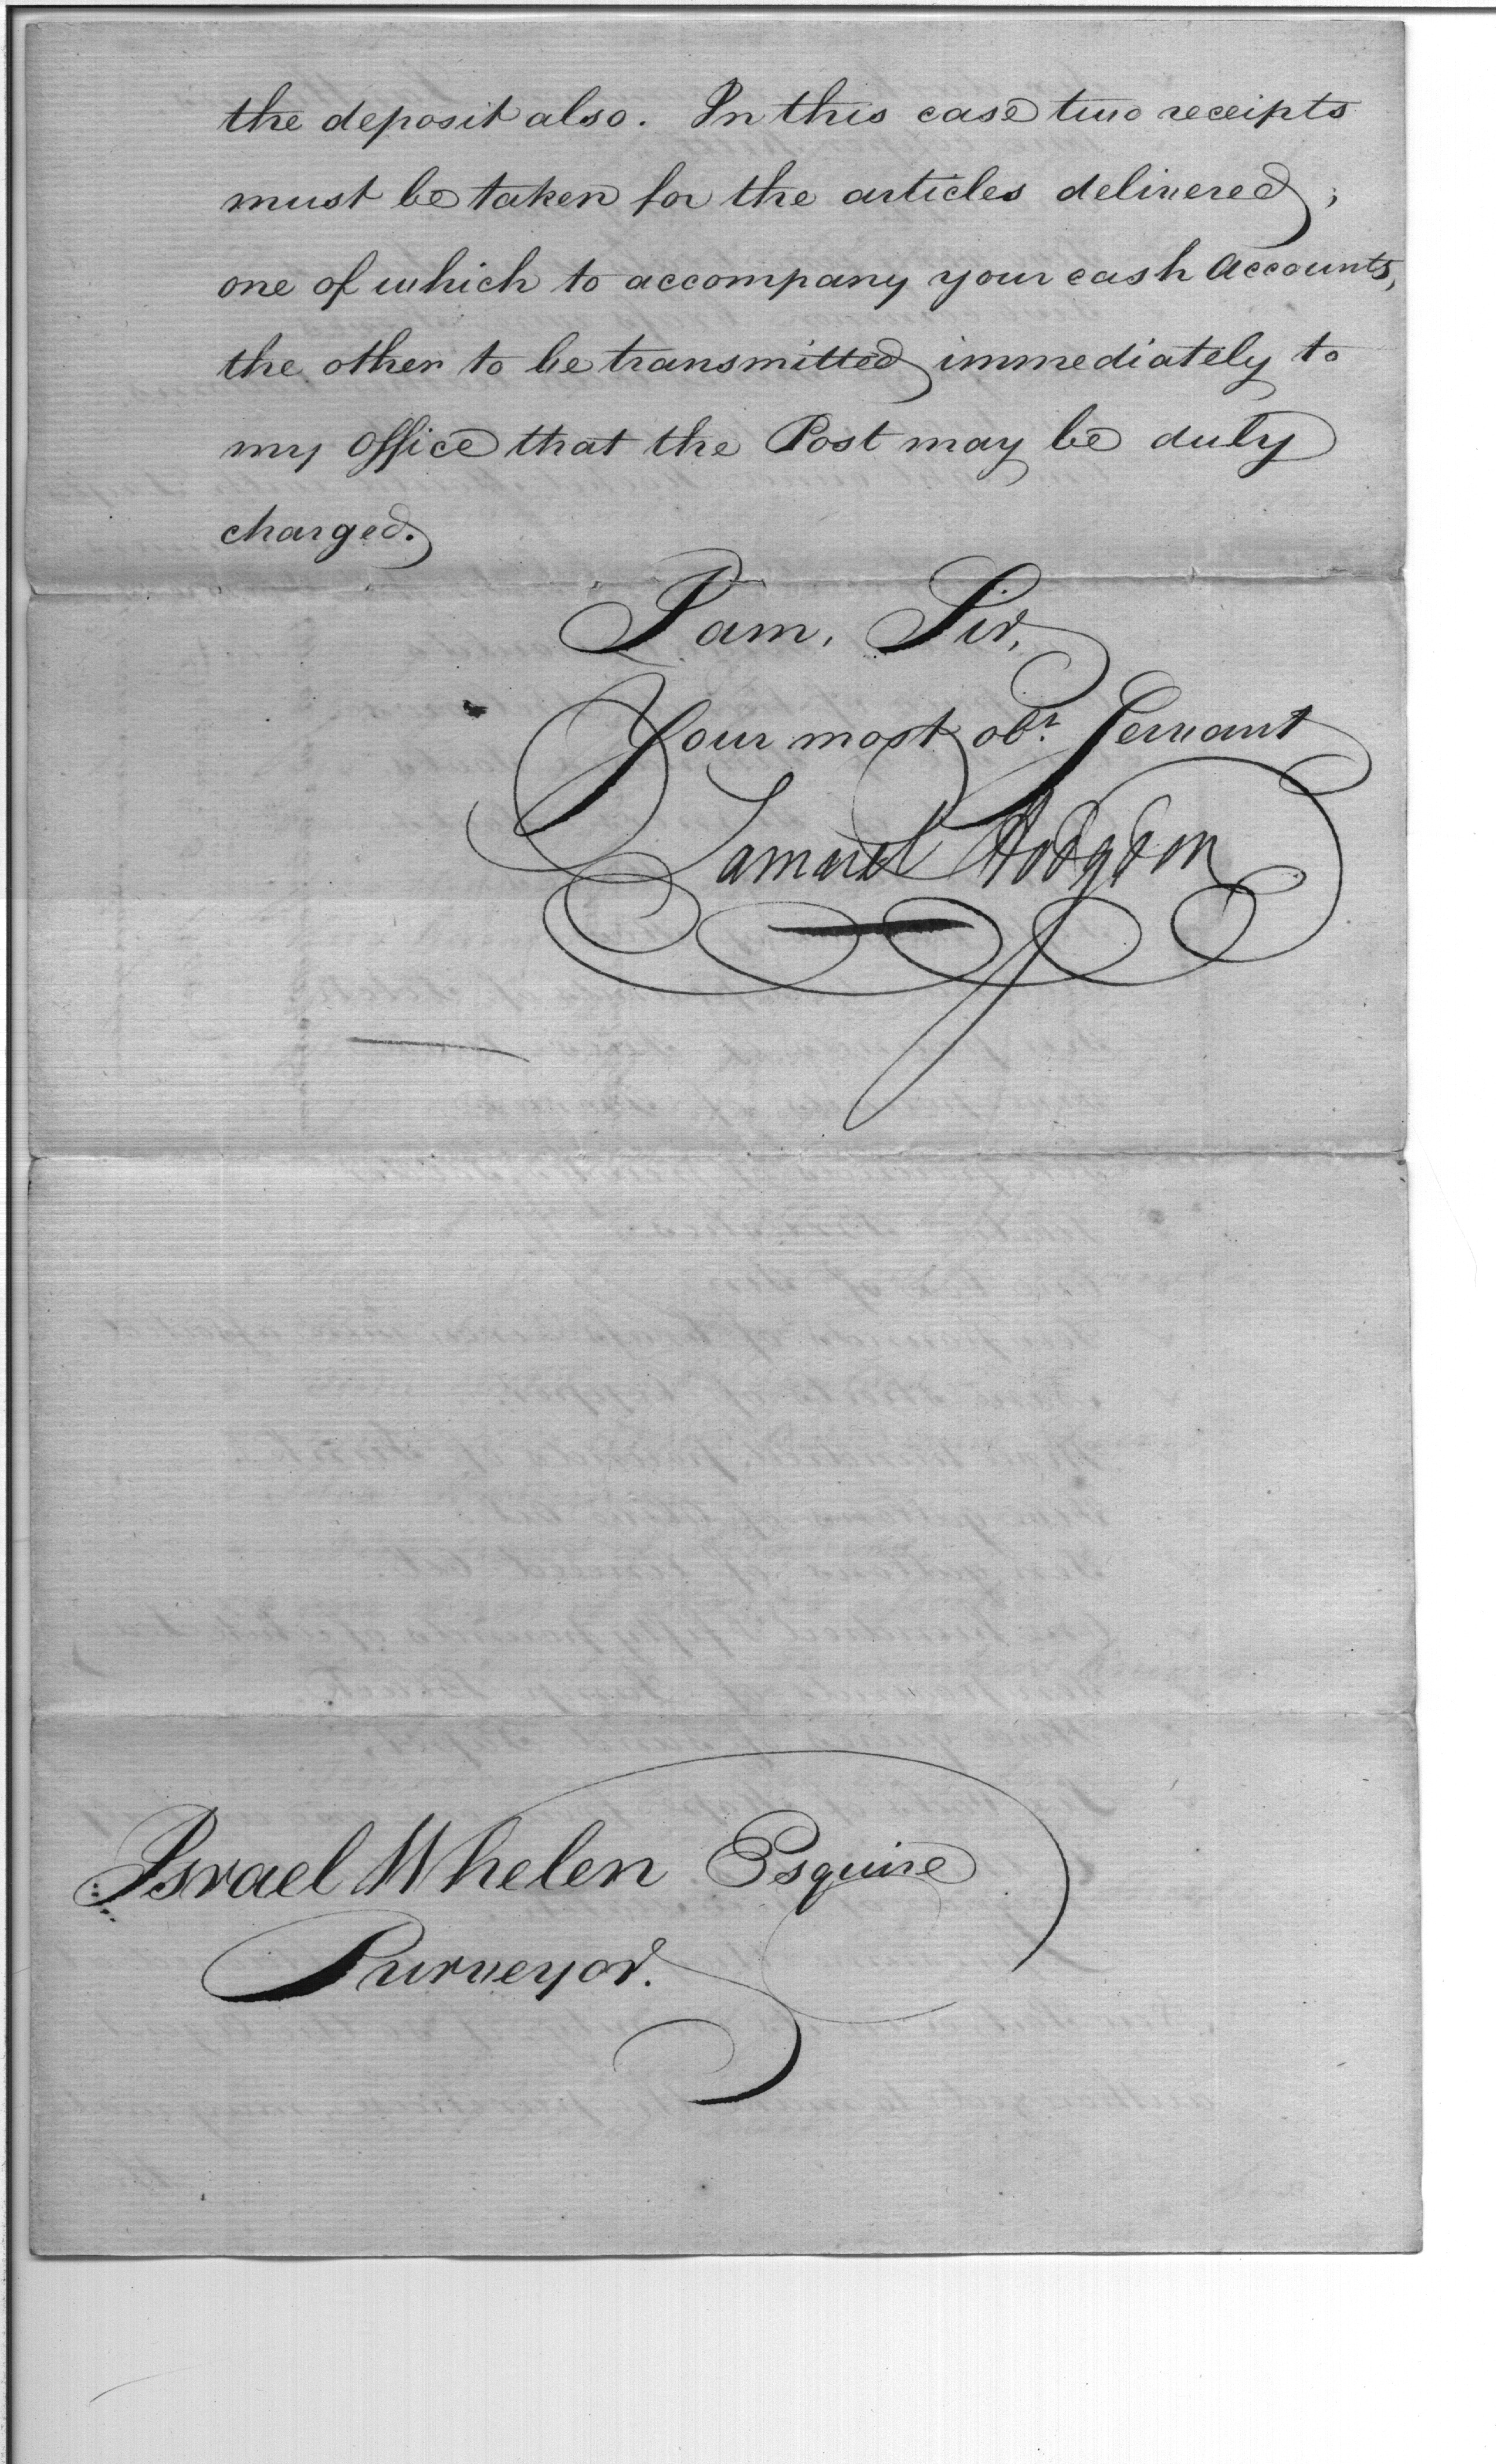 the deposit also. In this case two receipts
must be taken for the articles delivered;
one of which to accompany your cash Accounts,
the other to be transmitted immediately to
my Office that the Post may be duly
charged.
I am, Sir,
Your most obt. Servant
Samuel Hodgdon
Israel Whelen Esquire
Purveyor.